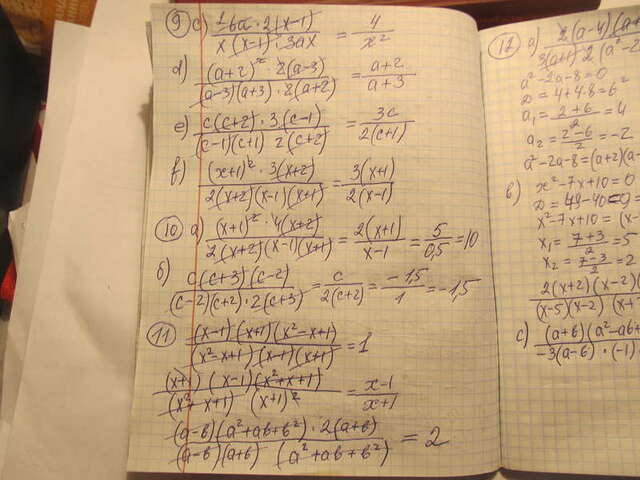 9 c) 16a · 2(x-1) / x(x-1) · 3ax = 4 / x²
d) (a+2)² · 2(a-3) / (a-3)(a+3) · 2(a+2) = a+2 / a+3
e) c(c+2) · 3(c-1) / (c-1)(c+1) 2(c+2) = 3c / 2(c+1)
f) (x+1)² · 3(x+2) / 2(x+2)(x-1)(x+1) = 3(x+1) / 2(x-1)
10 a) (x+1)² · 4(x+2) / 2(x+2)(x-1)(x+1) = 2(x+1) / x-1 = 5 / 0,5 = 10
б) c(c+3)(c-2) / (c-2)(c+2) · 2(c+3) = c / 2(c+2) = -1,5 / 1 = -1,5
11 (x-1)(x+1)(x²-x+1) / (x²-x+1)(x-1)(x+1) = 1
(x+1)(x-1)(x²+x+1) / (x²+x+1) (x+1)² = x-1 / x+1
(a-в)(a²+aв+в²) · 2(a+в) / (a-в)(a+в) (a²+aв+в²) = 2
12 a) 2(a-4)(a+ / 3(a+1) 2(a²-2a
a²-2a-8=0
D=4+4·8=6²
a₁=2+6 / 2=4
a₂=2-6 / 2=-2
a²-2a-8=(a+2)(a-
в) x²-7x+10=0
D=49-40=9=
x²-7x+10=(x-
x₁=7+3 / 2=5
x₂=7-3 / 2=2
2(x+2)(x-2)( / (x-5)(x-2) (x+
c) (a+в)(a²-aв+ / -3(a-в) · (-1)